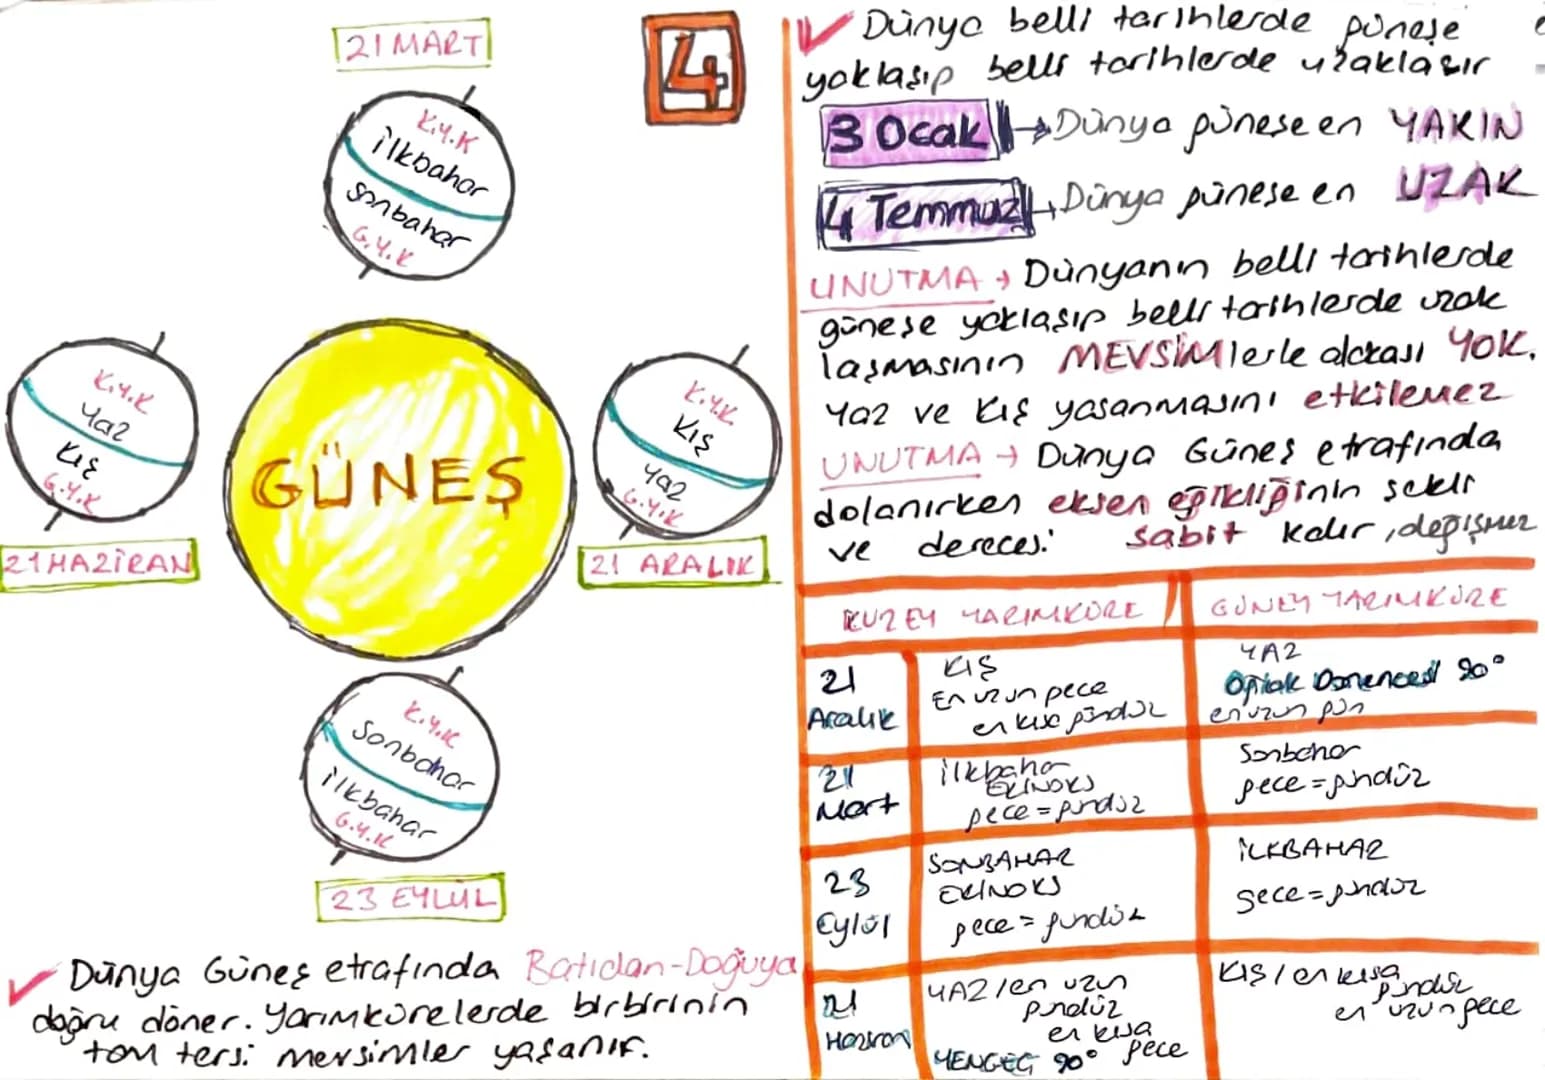 21 MART
K.Y.K
ilkbahar
Sonbahar
G.Y.K
K.Y.K
Yaz
Kış
G.Y.K
21 HAZİRAN
GÜNEŞ
K.Y.K
Kış
Yaz
G.Y.K
21 ARALIK
K.Y.K
Sonbahar
ilkbahar
G.Y.K
23 EYLÜL
Dünya Güneş etrafında Batıdan-Doğuya
doğru döner. Yarımkürelerde birbirinin
tam tersi mevsimler yaşanır.
4
Dünya belli tarihlerde güneşe
yaklaşıp belli tarihlerde uzaklaşır
3 Ocak → Dünya güneşe en YAKIN
4 Temmuz → Dünya güneşe en UZAK
UNUTMA → Dünyanın belli tarihlerde
güneşe yaklaşıp belli tarihlerde uzak
laşmasının MEVSİMlerle alakası YOK.
Yaz ve Kış yaşanmasını etkilemez
UNUTMA → Dünya Güneş etrafında
dolanırken eksen eğikliğinin şekli
ve derecesi sabit kalır, değişmez
KUZEY YARIMKÜRE GÜNEY YARIMKÜRE
21
Aralık
KIŞ
En uzun gece
en kısa gündüz
YAZ
Oğlak Dönencesi 90°
en uzun gün
21
Mart
ilkbahar
EKİNOKS
gece = gündüz
Sonbahar
gece = gündüz
23
Eylül
SONBAHAR
EKİNOKS
gece = gündüz
İLKBAHAR
gece = gündüz
21
Haziran
YAZ / en uzun
gündüz
en kısa
gece
YENGEÇ 90°
KIŞ / en kısa
gündüz
en uzun gece